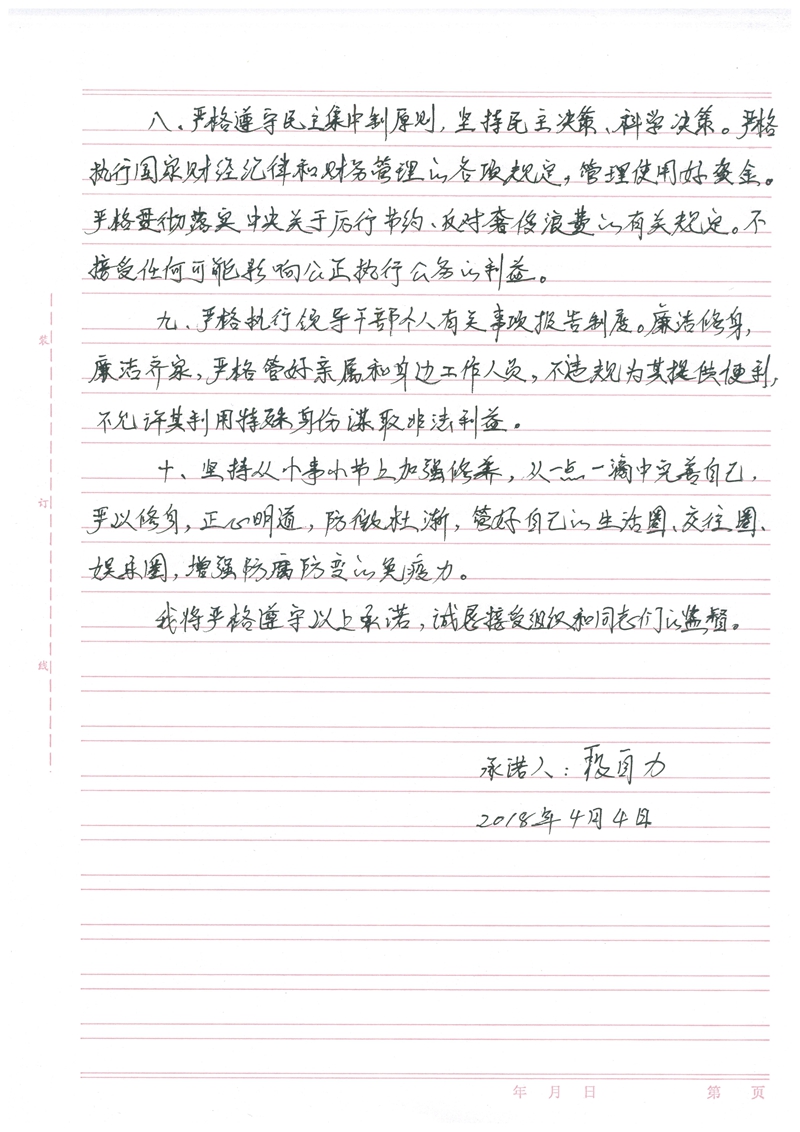 八、严格遵守民主集中制原则，坚持民主决策、科学决策。严格
执行国家财经纪律和财务管理的各项规定，管理使用好资金。
严格贯彻落实中央关于厉行节约、反对奢侈浪费的有关规定。不
接受任何可能影响公正执行公务的利益。
九、严格执行领导干部个人有关事项报告制度。廉洁修身，
廉洁齐家，严格管好亲属和身边工作人员，不违规为其提供便利，
不允许其利用特殊身份谋取非法利益。
十、坚持从小事小节上加强修养，从一点一滴中完善自己，
严以修身，正心明道，防微杜渐，管好自己的生活圈、交往圈、
娱乐圈，增强防腐防变的免疫力。
我将严格遵守以上承诺，诚恳接受组织和同志们的监督。
承诺人：自力
2018年4月4日
装
订
线
年 月 日 第 页